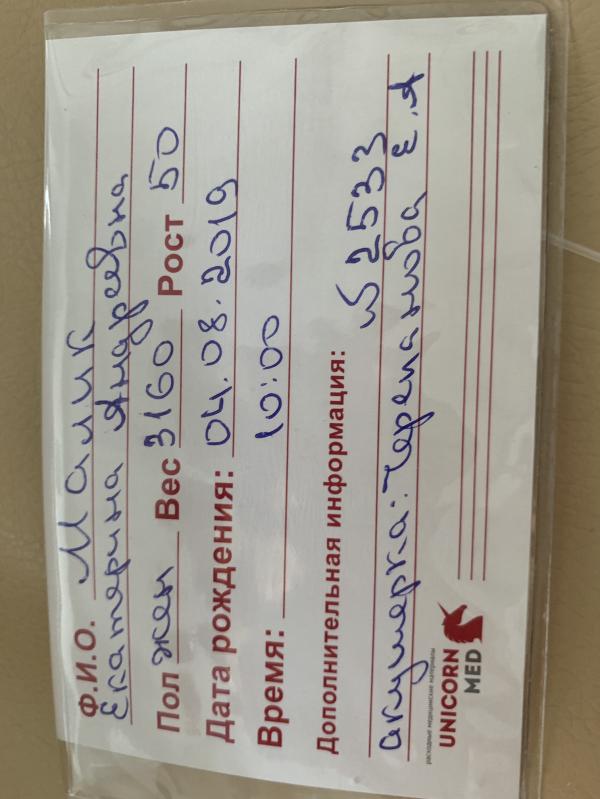 Ф.И.О. Малик
Екатерина Андреевна
Пол жен Вес 3160 Рост 50
Дата рождения: 04.08.2019
Время: 10:00
Дополнительная информация:
№ 2533
акушерка: Черепанова Е.А
расходные медицинские материалы
UNICORN
MED